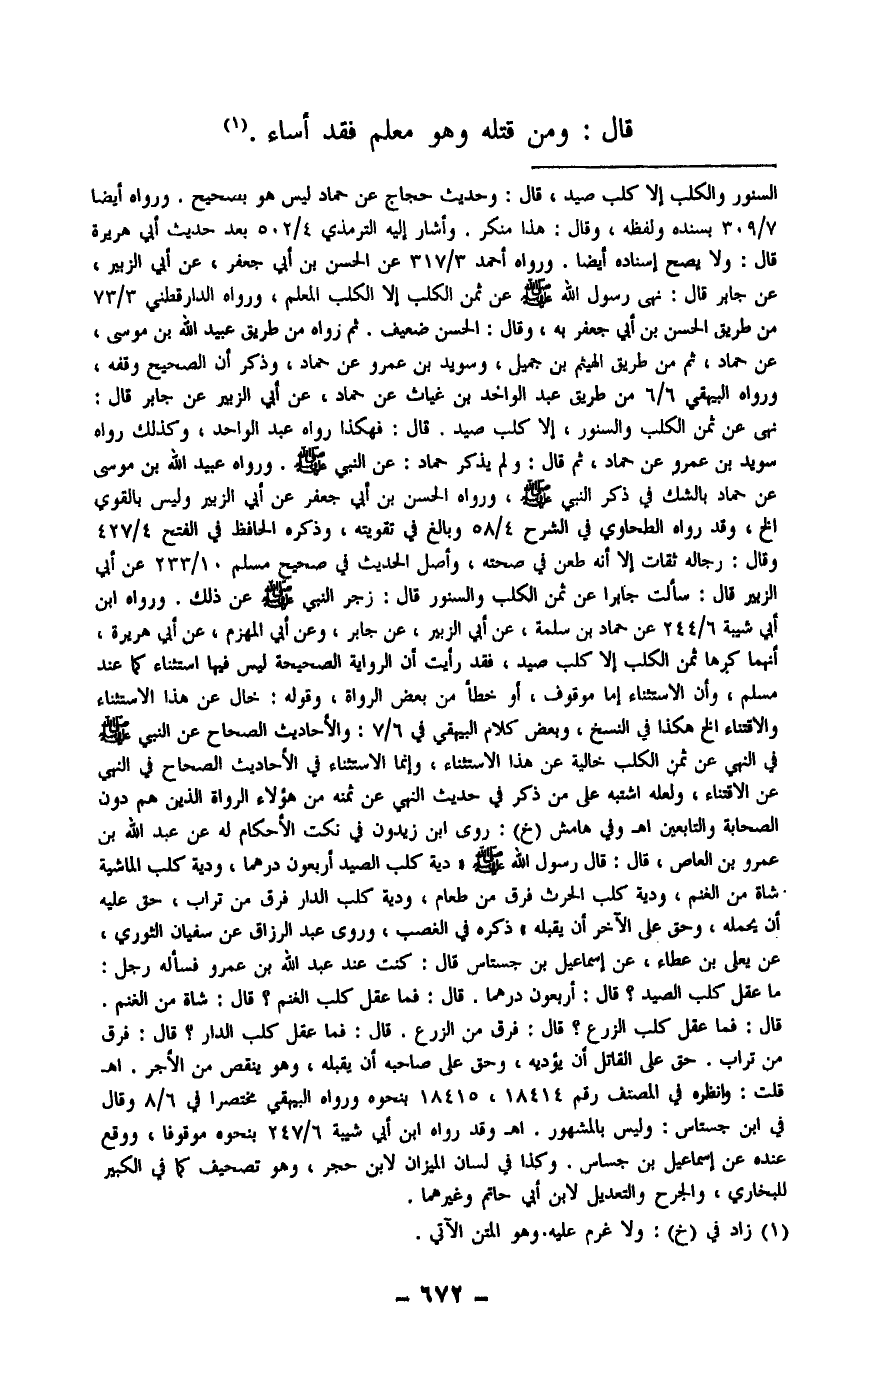 قال : ومن قتله وهو معلم فقد أساء .(١)
السنور والكلب إلا كلب صيد ، قال : وحديث حجاج عن حماد ليس هو بصحيح . ورواه أيضا
٣٠٩/٧ بسنده ولفظه ، وقال : هذا منكر . وأشار إليه الترمذي ٥٠٢/٤ بعد حديث أبي هريرة
قال : ولا يصح إسناده أيضا . ورواه أحمد ٣١٧/٣ عن الحسن بن أبي جعفر ، عن أبي الزبير ،
عن جابر قال : نهى رسول الله ﷺ عن ثمن الكلب إلا الكلب المعلم ، ورواه الدارقطني ٧٣/٣
من طريق الحسن بن أبي جعفر به ، وقال : الحسن ضعيف . ثم رواه من طريق عبيد الله بن موسى ،
عن حماد ، ثم من طريق الهيثم بن جميل ، وسويد بن عمرو عن حماد ، وذكر أن الصحيح وقفه ،
ورواه البيهقي ٦/٦ من طريق عبد الواحد بن غياث عن حماد ، عن أبي الزبير عن جابر قال :
نهى عن ثمن الكلب والسنور ، إلا كلب صيد . قال : فهكذا رواه عبد الواحد ، وكذلك رواه
سويد بن عمرو عن حماد ، ثم قال : ولم يذكر حماد : عن النبي ﷺ . ورواه عبيد الله بن موسى
عن حماد بالشك في ذكر النبي ﷺ ، ورواه الحسن بن أبي جعفر عن أبي الزبير وليس بالقوي
الخ ، وقد رواه الطحاوي في الشرح ٥٨/٤ وبالغ في تقويته ، وذكره الحافظ في الفتح ٤٢٧/٤
وقال : رجاله ثقات إلا أنه طعن في صحته ، وأصل الحديث في صحيح مسلم ٢٣٣/١٠ عن أبي
الزبير قال : سألت جابرا عن ثمن الكلب والسنور قال : زجر النبي ﷺ عن ذلك . ورواه ابن
أبي شيبة ٢٤٤/٦ عن حماد بن سلمة ، عن أبي الزبير ، عن جابر ، وعن أبي المهزم ، عن أبي هريرة ،
أنهما كرها ثمن الكلب إلا كلب صيد ، فقد رأيت أن الرواية الصحيحة ليس فيها استثناء كما عند
مسلم ، وأن الاستثناء إما موقوف ، أو خطأ من بعض الرواة ، وقوله : خال عن هذا الاستثناء
والاقتناء الخ هكذا في النسخ ، وبعض كلام البيهقي في ٧/٦ : والأحاديث الصحاح عن النبي ﷺ
في النهي عن ثمن الكلب خالية عن هذا الاستثناء ، وإنما الاستثناء في الأحاديث الصحاح في النهي
عن الاقتناء ، ولعله اشتبه على من ذكر في حديث النهي عن ثمنه من هؤلاء الرواة الذين هم دون
الصحابة والتابعين اهـ وفي هامش (خ) : روى ابن زيدون في نكت الأحكام له عن عبد الله بن
عمرو بن العاص ، قال : قال رسول الله ﷺ « دية كلب الصيد أربعون درهما ، ودية كلب الماشية
شاة من الغنم ، ودية كلب الحرث فرق من طعام ، ودية كلب الدار فرق من تراب ، حق عليه
أن يحمله ، وحق على الآخر أن يقبله » ذكره في الغصب ، وروى عبد الرزاق عن سفيان الثوري ،
عن يعلى بن عطاء ، عن إسماعيل بن جستاس قال : كنت عند عبد الله بن عمرو فسأله رجل :
ما عقل كلب الصيد ؟ قال : أربعون درهما . قال : فما عقل كلب الغنم ؟ قال : شاة من الغنم .
قال : فما عقل كلب الزرع ؟ قال : فرق من الزرع . قال : فما عقل كلب الدار ؟ قال : فرق
من تراب . حق على القاتل أن يؤديه ، وحق على صاحبه أن يقبله ، وهو ينقص من الأجر . اهـ
قلت : وانظره في المصنف رقم ١٨٤١٤ ، ١٨٤١٥ بنحوه ورواه البيهقي مختصرا في ٨/٦ وقال
في ابن جستاس : وليس بالمشهور . اهـ وقد رواه ابن أبي شيبة ٢٤٧/٦ بنحوه موقوفا ، ووقع
عنده عن إسماعيل بن جساس . وكذا في لسان الميزان لابن حجر ، وهو تصحيف كما في الكبير
للبخاري ، والجرح والتعديل لابن أبي حاتم وغيرهما .
(١) زاد في (خ) : ولا غرم عليه.وهو المتن الآتي .
– ٦٧٢ –